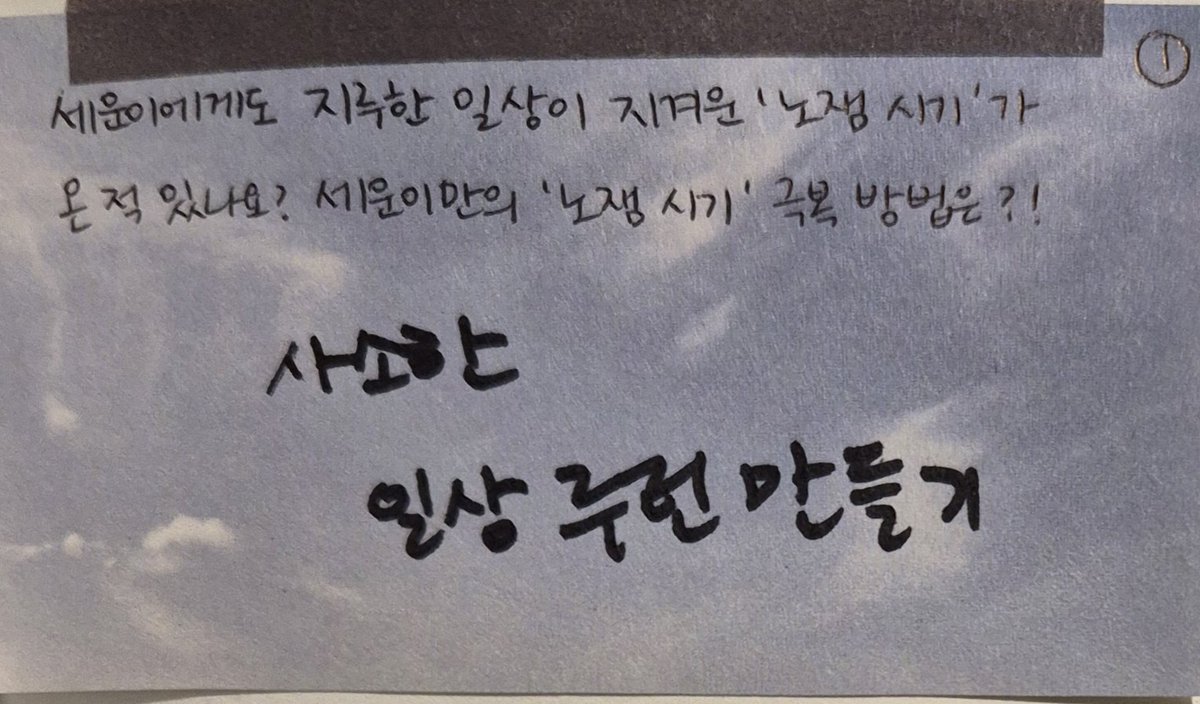 ①
세운이에게도 지루한 일상이 지겨운 '노잼 시기'가
온 적 있나요? 세운이만의 '노잼 시기' 극복 방법은?!
사소한
일상 루헌 만들기